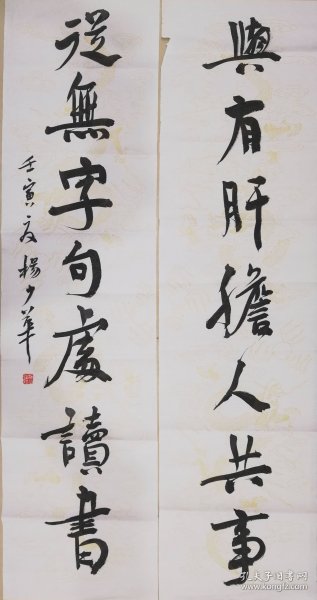 與有肝膽人共事
從無字句處讀書
壬寅夏 楊少華
孔夫子旧书网